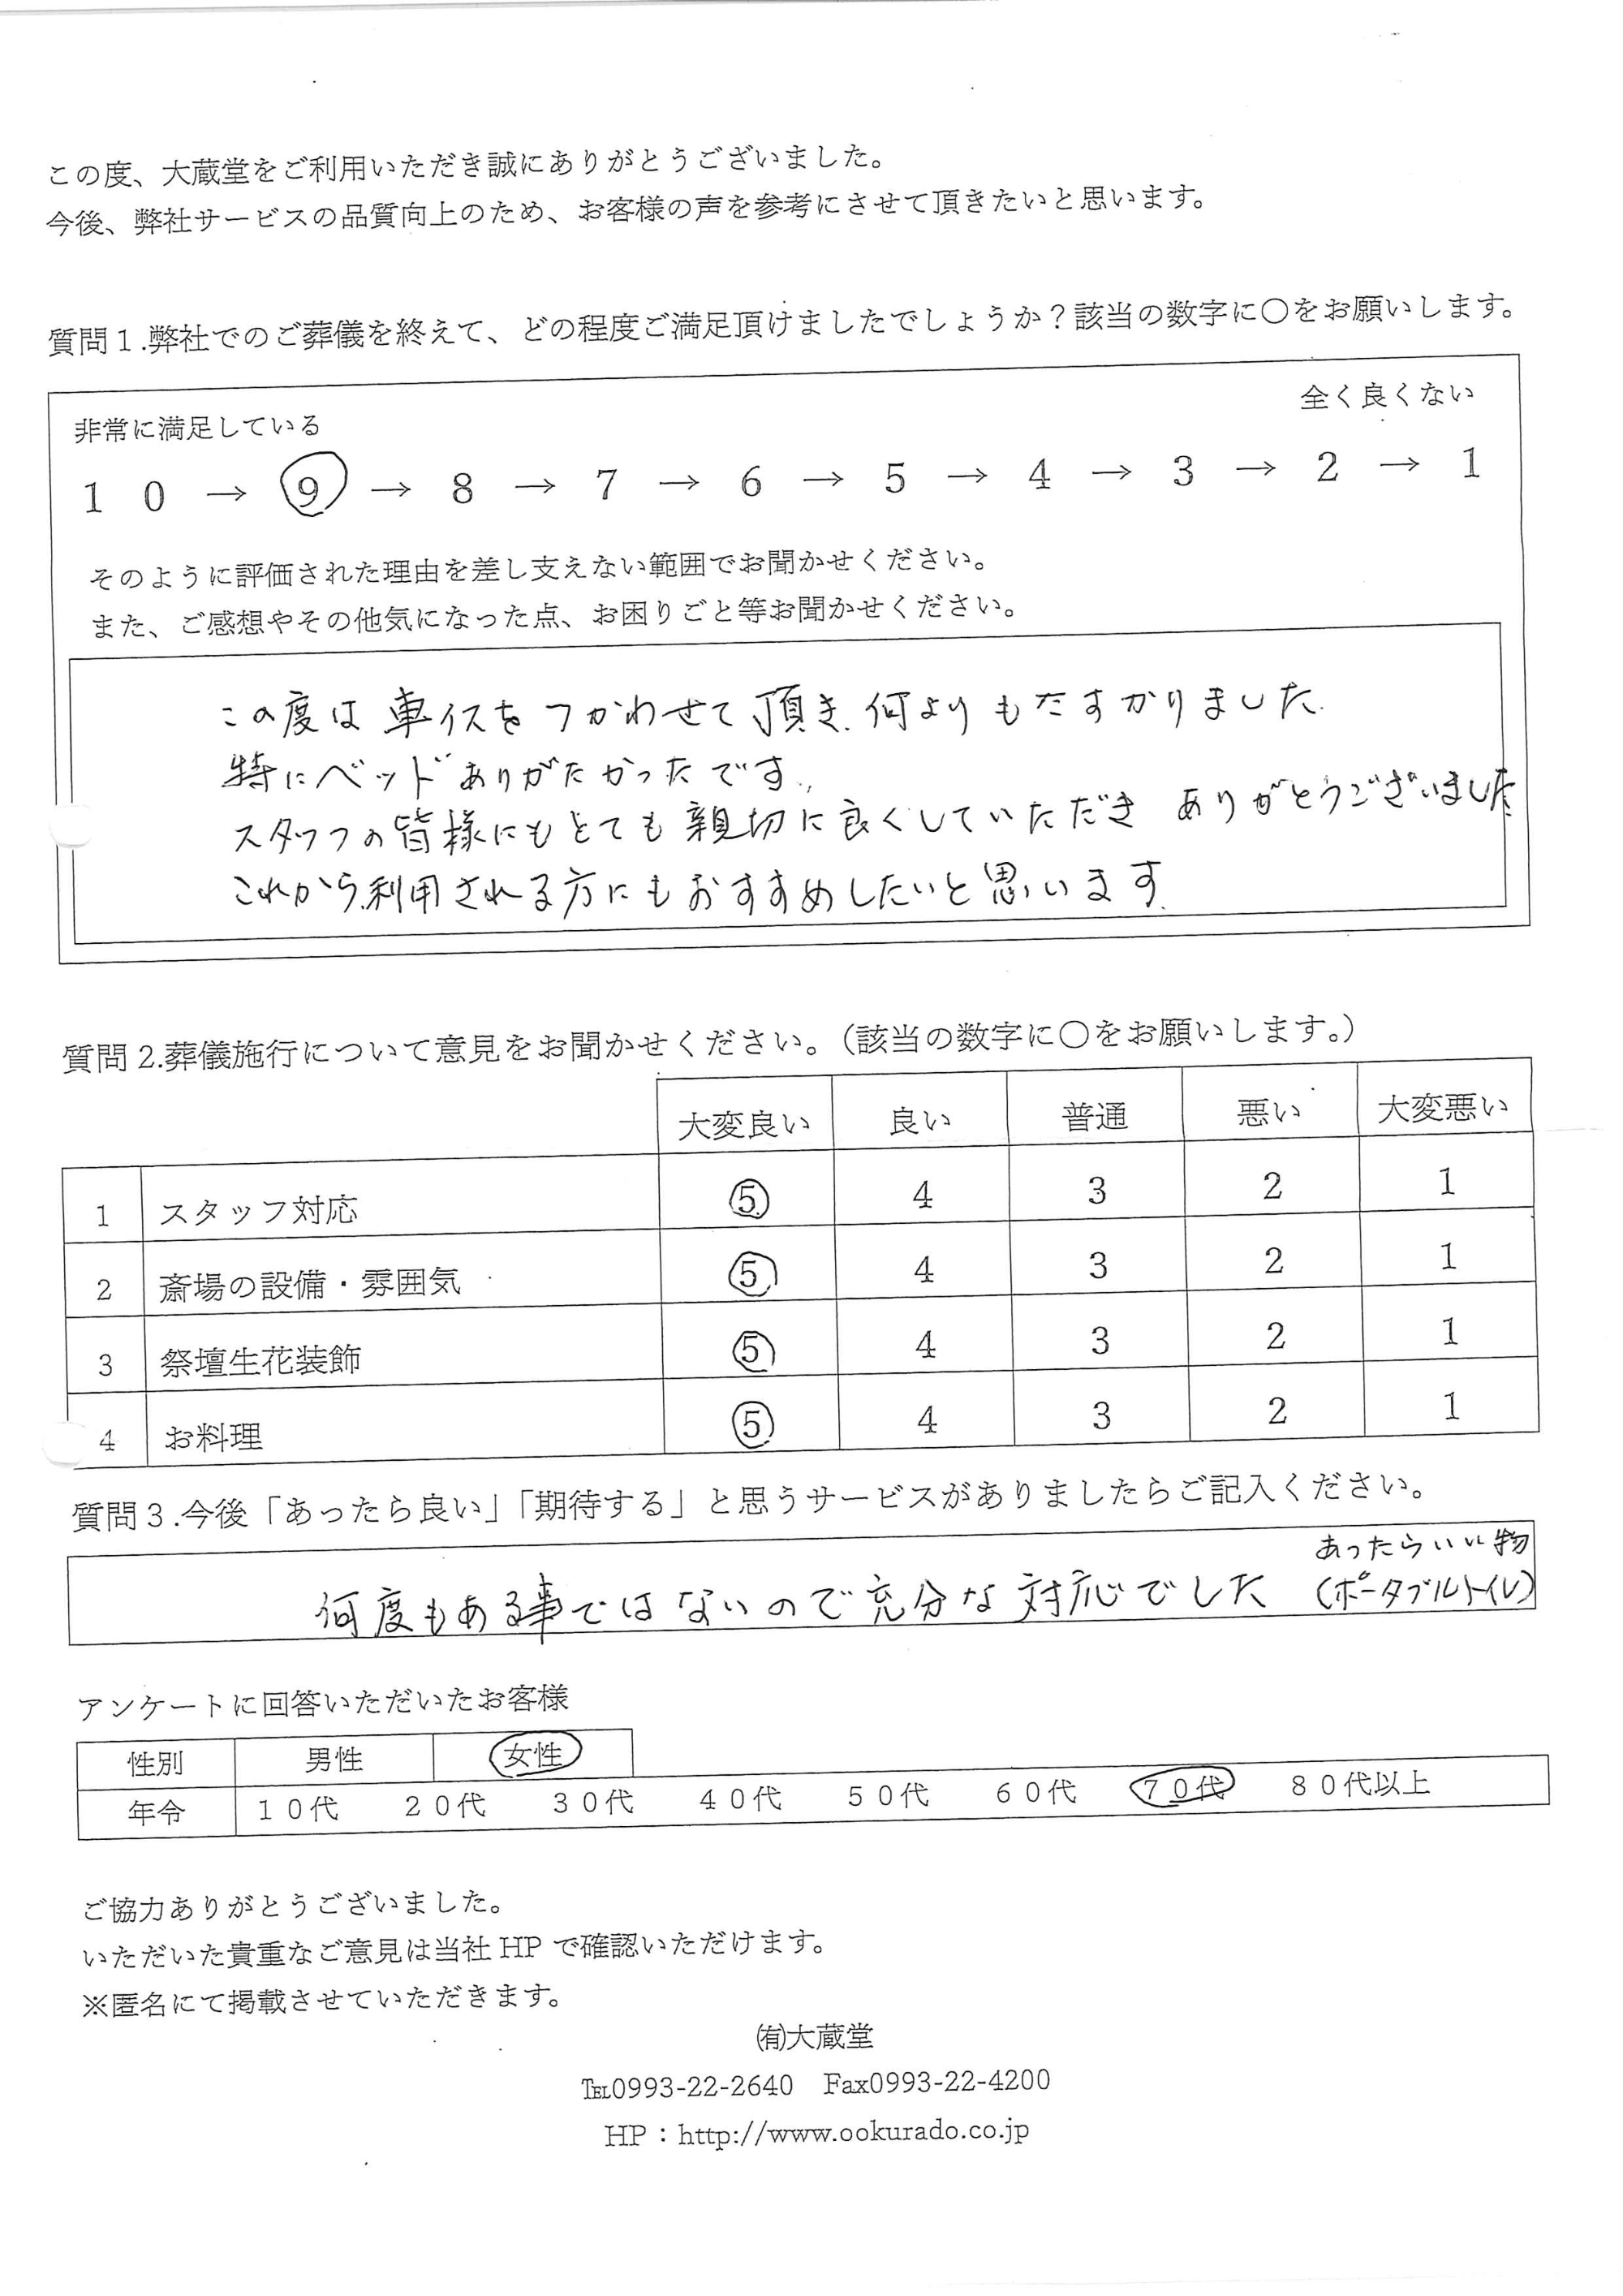 この度、大蔵堂をご利用いただき誠にありがとうございました。
今後、弊社サービスの品質向上のため、お客様の声を参考にさせて頂きたいと思います。
質問１.弊社でのご葬儀を終えて、どの程度ご満足頂けましたでしょうか？該当の数字に○をお願いします。
非常に満足している 全く良くない
１０ → ９ → ８ → ７ → ６ → ５ → ４ → ３ → ２ → １
そのように評価された理由を差し支えない範囲でお聞かせください。
また、ご感想やその他気になった点、お困りごと等お聞かせください。
この度は車イスをつかわせて頂き、何よりもたすかりました.
特にベッドありがたかったです.
スタッフの皆様にもとても親切に良くしていただき ありがとうございました
これから利用される方にもおすすめしたいと思います.
質問2.葬儀施行について意見をお聞かせください。（該当の数字に○をお願いします。）
大変良い 良い 普通 悪い 大変悪い
1 スタッフ対応 5 4 3 2 1
2 斎場の設備・雰囲気 5 4 3 2 1
3 祭壇生花装飾 5 4 3 2 1
4 お料理 5 4 3 2 1
質問３.今後「あったら良い」「期待する」と思うサービスがありましたらご記入ください。
何度もある事ではないので充分な対応でした
あったらいい物
(ポータブルトイレ)
アンケートに回答いただいたお客様
性別 男性 女性
年令 １０代 ２０代 ３０代 ４０代 ５０代 ６０代 ７０代 ８０代以上
ご協力ありがとうございました。
いただいた貴重なご意見は当社 HP で確認いただけます。
※匿名にて掲載させていただきます。
㈲大蔵堂
℡0993-22-2640 Fax0993-22-4200
HP：http://www.ookurado.co.jp